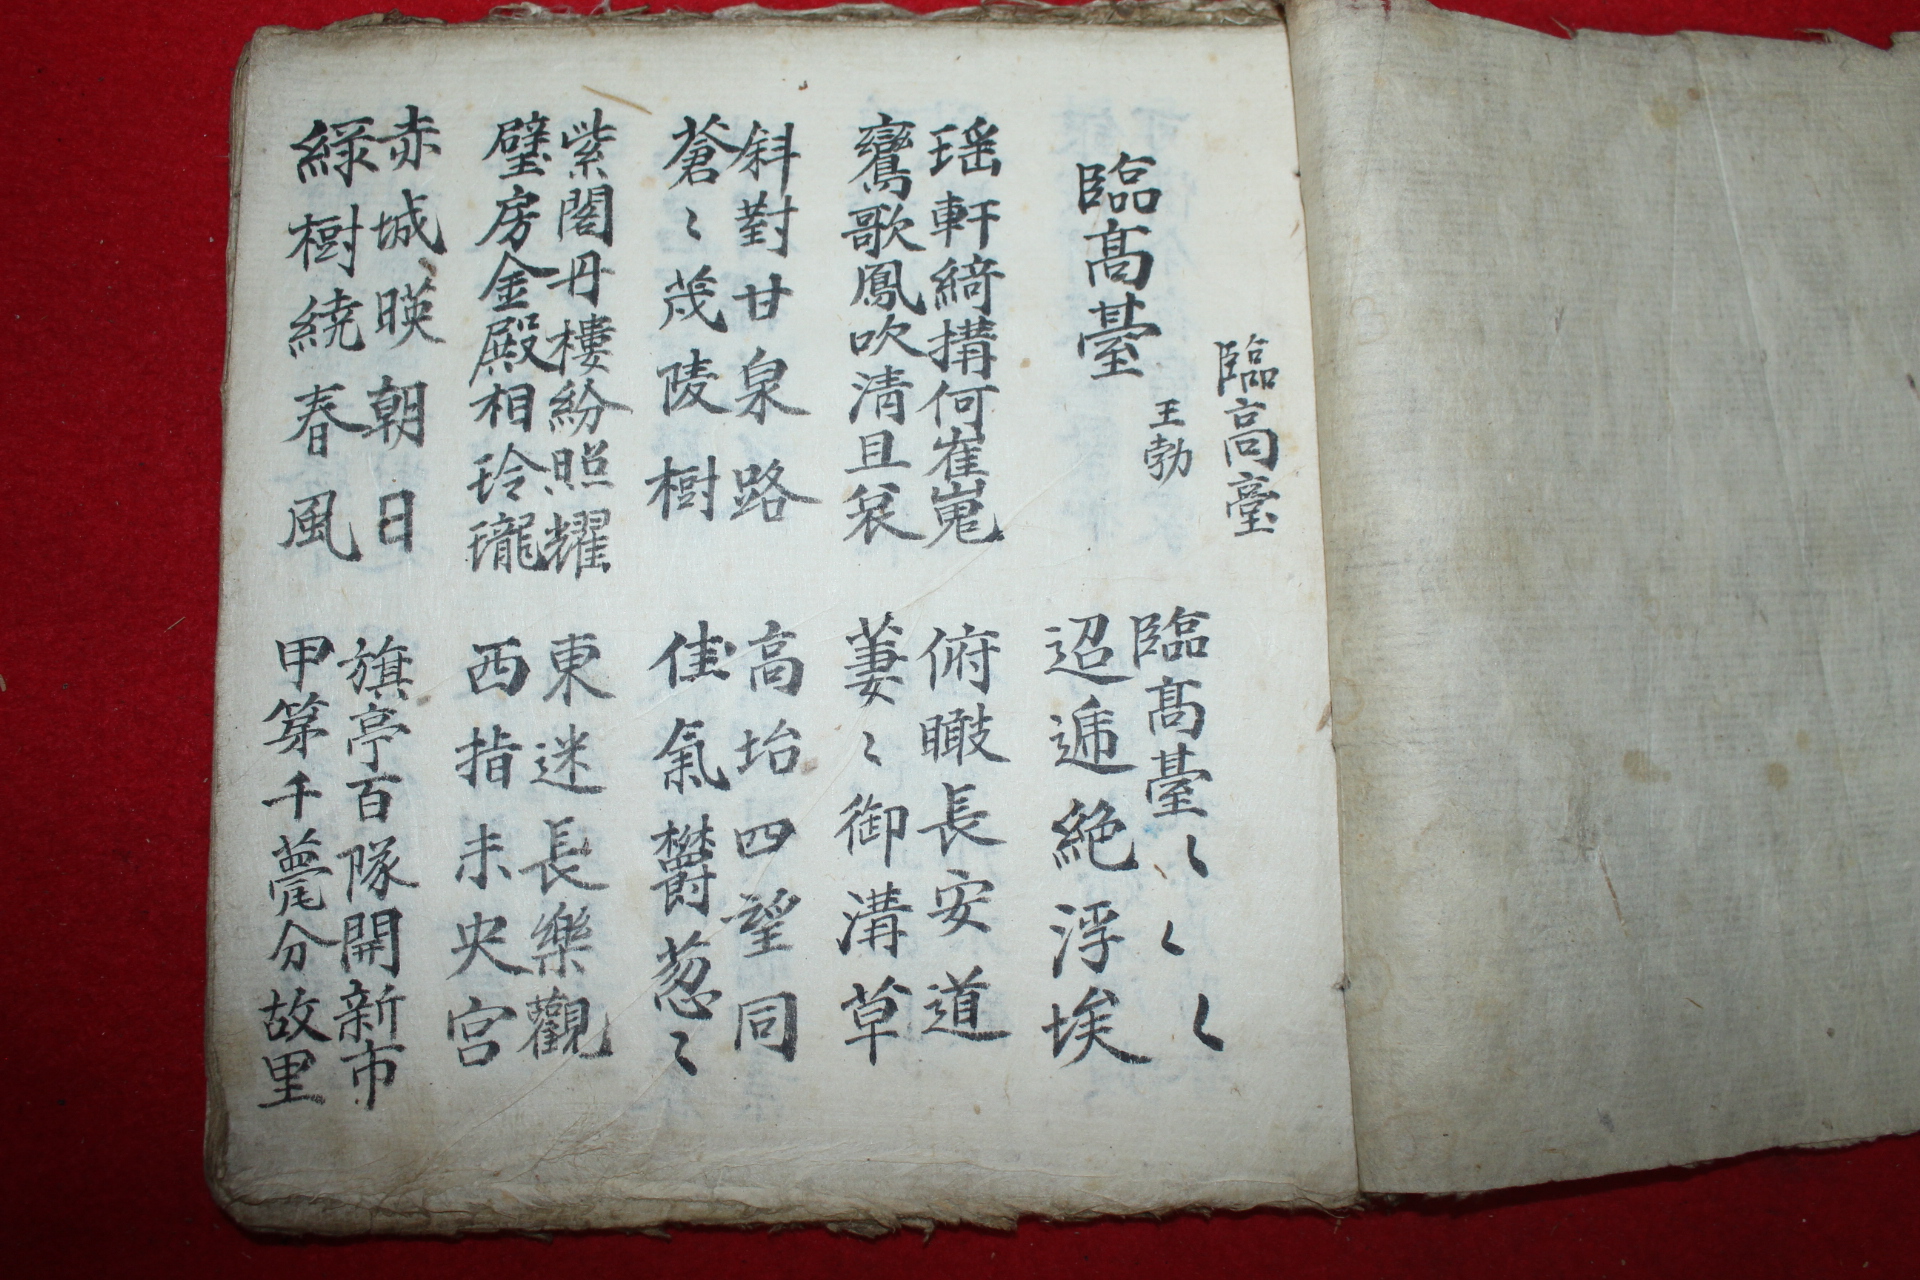 臨高臺
臨高臺
王勃
臨高臺〻〻〻
迢遞絶浮埃
瑶軒綺構何崔嵬
鸞歌鳳吹清且哀
俯瞰長安道
萋〻御溝草
斜對甘泉路
蒼〻茂陵樹
高坮四望同
佳氣欝葱〻
紫閣丹樓紛照耀
璧房金殿相玲瓏
東迷長樂觀
西指未央宮
赤城暎朝日
綠樹繞春風
旗亭百隊開新市
甲第千甍分故里